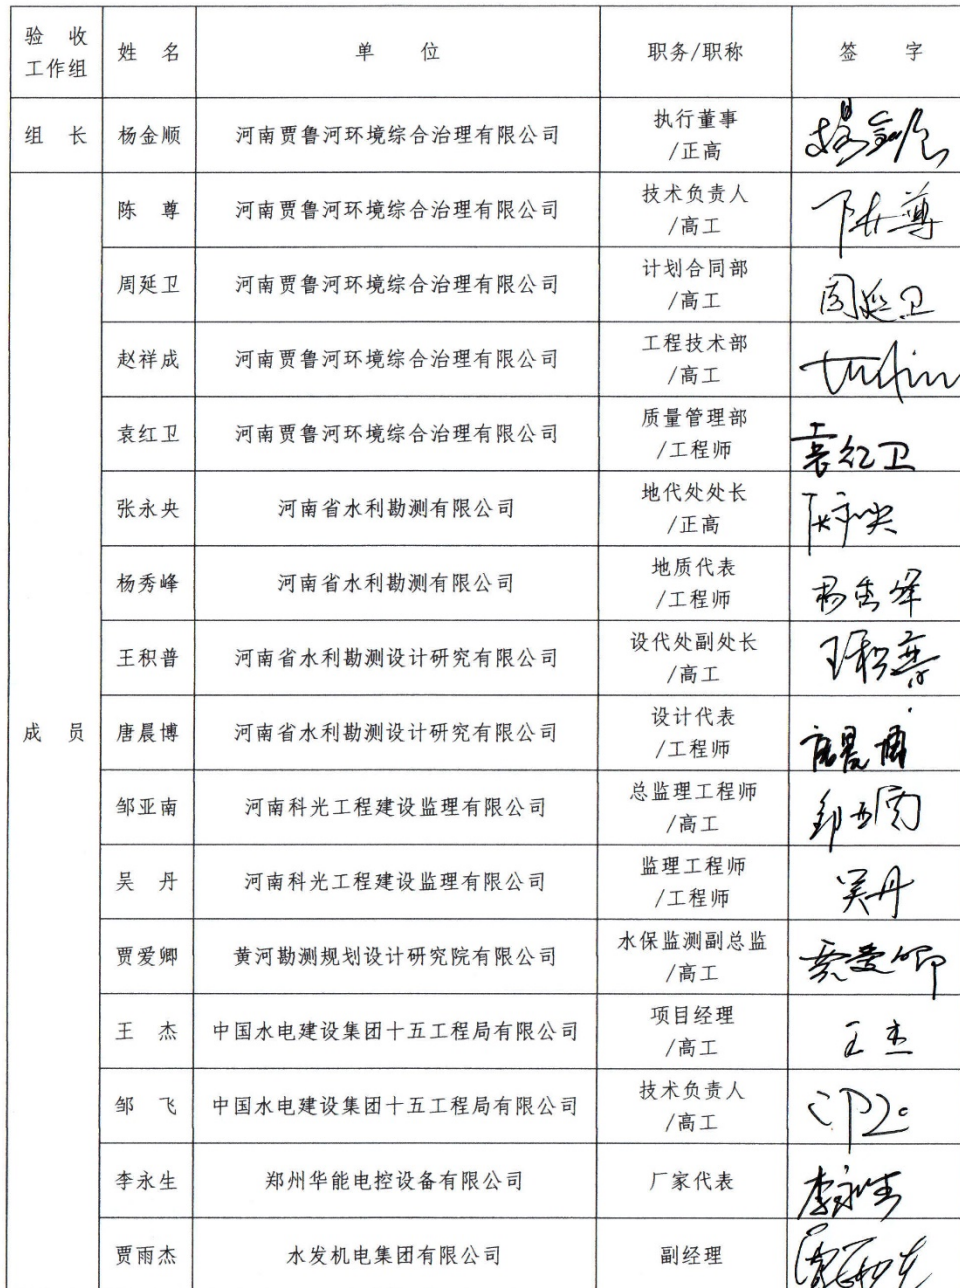 验 收 姓 名 单 位 职务/职称 签 字
工作组
组 长 杨金顺 河南贾鲁河环境综合治理有限公司 执行董事
/正高
陈 尊 河南贾鲁河环境综合治理有限公司 技术负责人 陈尊
/高工
周延卫 河南贾鲁河环境综合治理有限公司 计划合同部 周延卫
/高工
赵祥成 河南贾鲁河环境综合治理有限公司 工程技术部
/高工
袁红卫 河南贾鲁河环境综合治理有限公司 质量管理部 袁红卫
/工程师
张永央 河南省水利勘测有限公司 地代处处长 张永央
/正高
杨秀峰 河南省水利勘测有限公司 地质代表 杨秀峰
/工程师
王积普 河南省水利勘测设计研究有限公司 设代处副处长 王积普
/高工
成 员 唐晨博 河南省水利勘测设计研究有限公司 设计代表 唐晨博
/工程师
邹亚南 河南科光工程建设监理有限公司 总监理工程师 邹亚南
/高工
吴 丹 河南科光工程建设监理有限公司 监理工程师 吴丹
/工程师
贾爱卿 黄河勘测规划设计研究院有限公司 水保监测副总监 贾爱卿
/高工
王 杰 中国水电建设集团十五工程局有限公司 项目经理 王杰
/高工
邹 飞 中国水电建设集团十五工程局有限公司 技术负责人
/高工
李永生 郑州华能电控设备有限公司 厂家代表 李永生
贾雨杰 水发机电集团有限公司 副经理